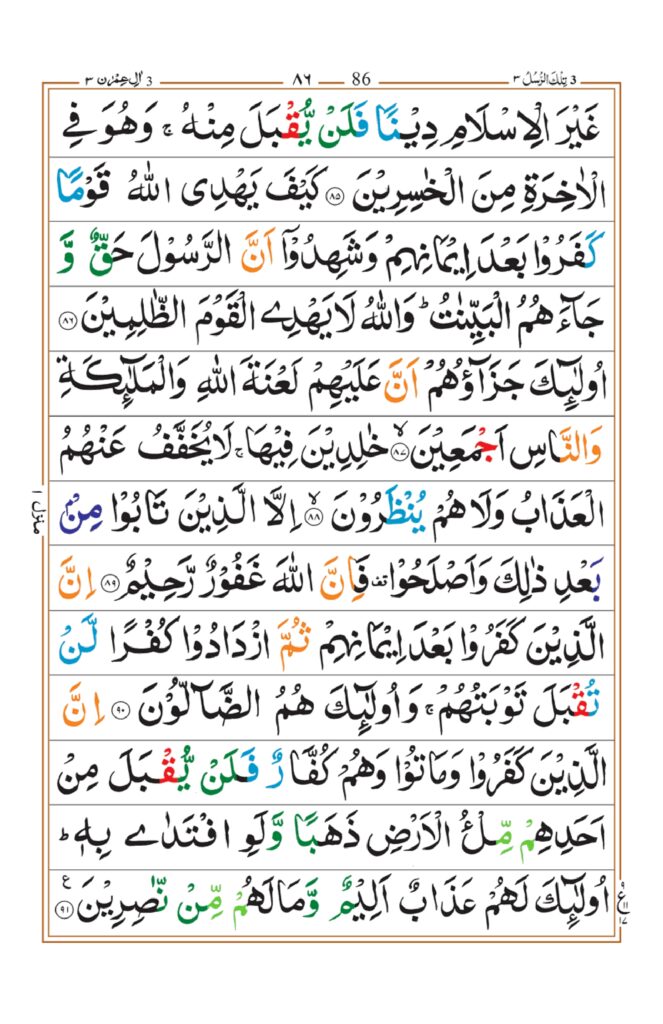 3 تِلْكَ الرُّسُلُ ٣ 86 ٨٦ 3 اٰلِ عِمْرٰن ٣
غَيْرَ الْاِسْلَامِ دِيْنًا فَلَنْ يُّقْبَلَ مِنْهُ ۚ وَهُوَ فِي
الْاٰخِرَةِ مِنَ الْخٰسِرِيْنَ ﴿٨٥﴾ كَيْفَ يَهْدِى اللّٰهُ قَوْمًا
كَفَرُوْا بَعْدَ اِيْمَانِهِمْ وَشَهِدُوْۤا اَنَّ الرَّسُوْلَ حَقٌّ وَّ
جَآءَهُمُ الْبَيِّنٰتُ ؕ وَاللّٰهُ لَا يَهْدِے الْقَوْمَ الظّٰلِمِيْنَ ﴿٨٦﴾
اُولٰٓئِكَ جَزَآؤُهُمْ اَنَّ عَلَيْهِمْ لَعْنَةَ اللّٰهِ وَالْمَلٰٓئِكَةِ
وَالنَّاسِ اَجْمَعِيْنَ ﴿٨٧﴾ ۙ خٰلِدِيْنَ فِيْهَا ۚ لَا يُخَفَّفُ عَنْهُمُ
الْعَذَابُ وَلَا هُمْ يُنْظَرُوْنَ ﴿٨٨﴾ ۙ اِلَّا الَّذِيْنَ تَابُوْا مِنْۢ
بَعْدِ ذٰلِكَ وَاَصْلَحُوْا ۟ فَاِنَّ اللّٰهَ غَفُوْرٌ رَّحِيْمٌ ﴿٨٩﴾ اِنَّ
الَّذِيْنَ كَفَرُوْا بَعْدَ اِيْمَانِهِمْ ثُمَّ ازْدَادُوْا كُفْرًا لَّنْ
تُقْبَلَ تَوْبَتُهُمْ ۚ وَاُولٰٓئِكَ هُمُ الضَّآلُّوْنَ ﴿٩٠﴾ اِنَّ
الَّذِيْنَ كَفَرُوْا وَمَاتُوْا وَهُمْ كُفَّارٌ فَلَنْ يُّقْبَلَ مِنْ
اَحَدِهِمْ مِّلْءُ الْاَرْضِ ذَهَبًا وَّلَوِ افْتَدٰے بِهٖ ؕ
اُولٰٓئِكَ لَهُمْ عَذَابٌ اَلِيْمٌ وَّمَا لَهُمْ مِّنْ نّٰصِرِيْنَ ﴿٩١﴾ ع
منزل ١
ع ١١ ١٧